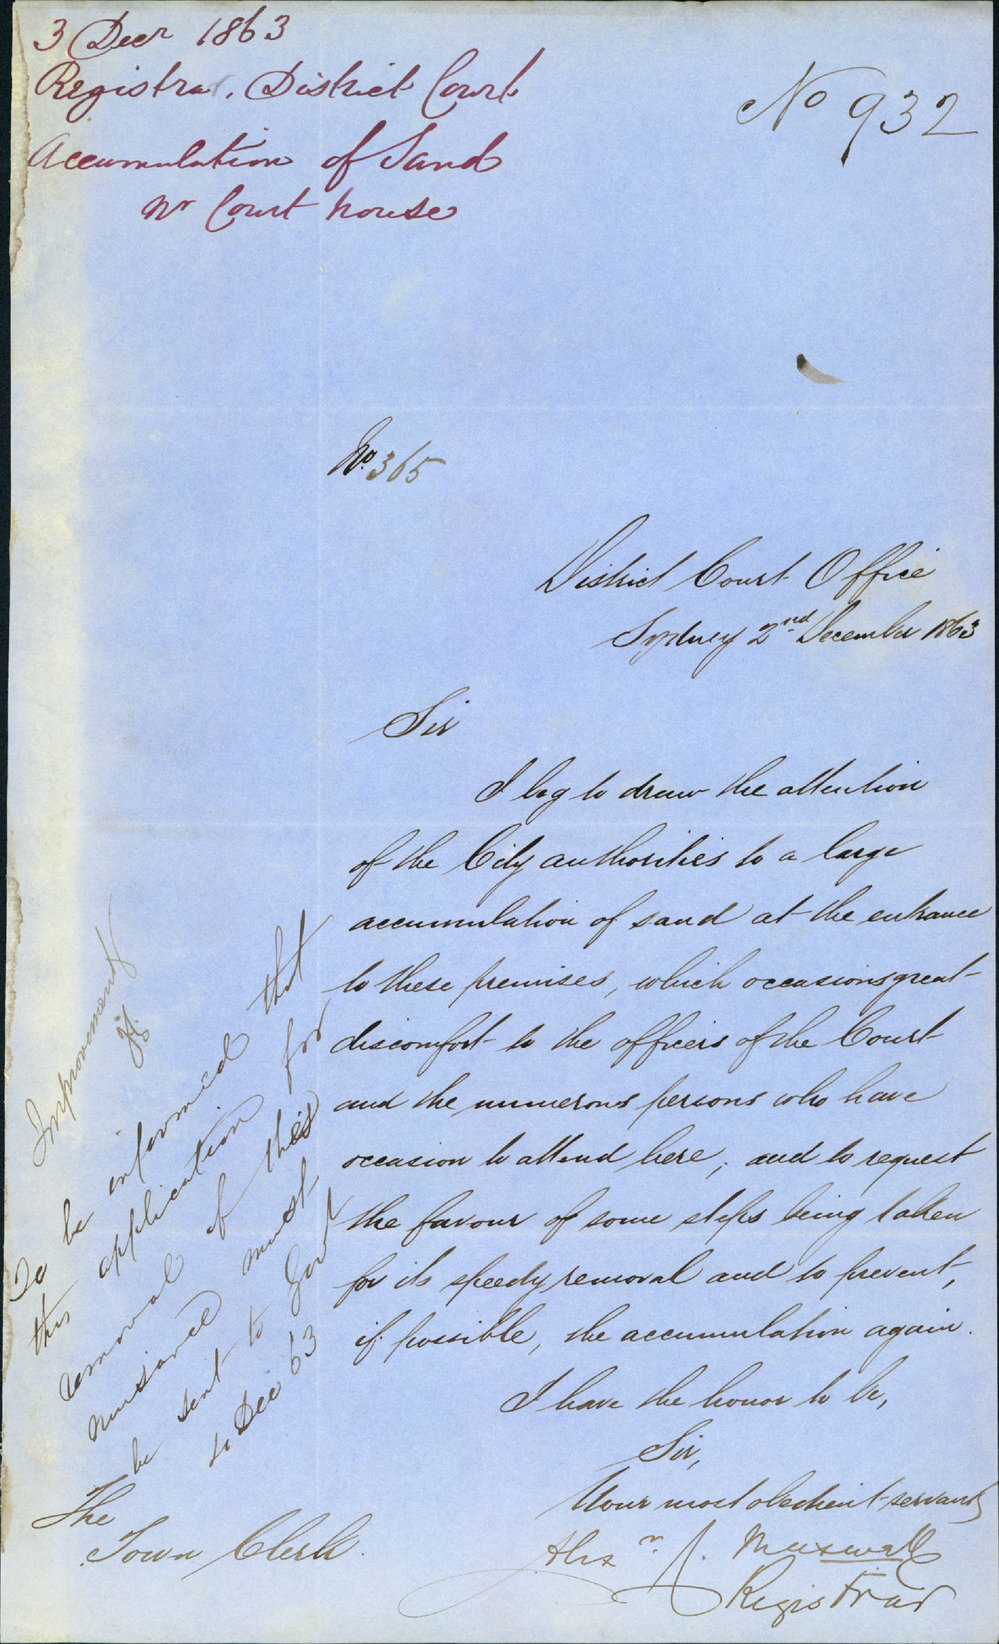 3 Decr 1863
Registrar. District Court
Accumulation of Sand
nr Court house
No 932
No. 365
District Court Office
Sydney 2nd December 1863
Sir
I beg to draw the attention
of the City authorities to a large
accumulation of sand at the entrance
to these premises, which occasions great
discomfort to the officers of the Court
and the numerous persons who have
occasion to attend here, and to request
the favour of some steps being taken
for its speedy removal and to prevent,
if possible, the accumulation again.
I have the honor to be,
Sir,
Your most obedient servant
Alexr. Maxwell
Registrar
The
Town Clerk.
Improvement
To be informed that
this application for
removal of this
nuisance must
be sent to Govt
Dec 63